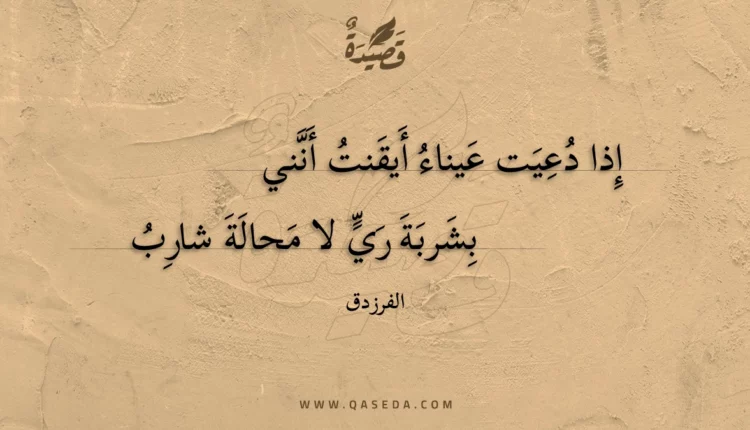 قَصِيدَةٌ
إِذا دُعِيَت عَيناءُ أَيقَنتُ أَنَّني
بِشَربَةَ رَيٍّ لا مَحالَةَ شارِبُ
الفرزدق
WWW.QASEDA.COM